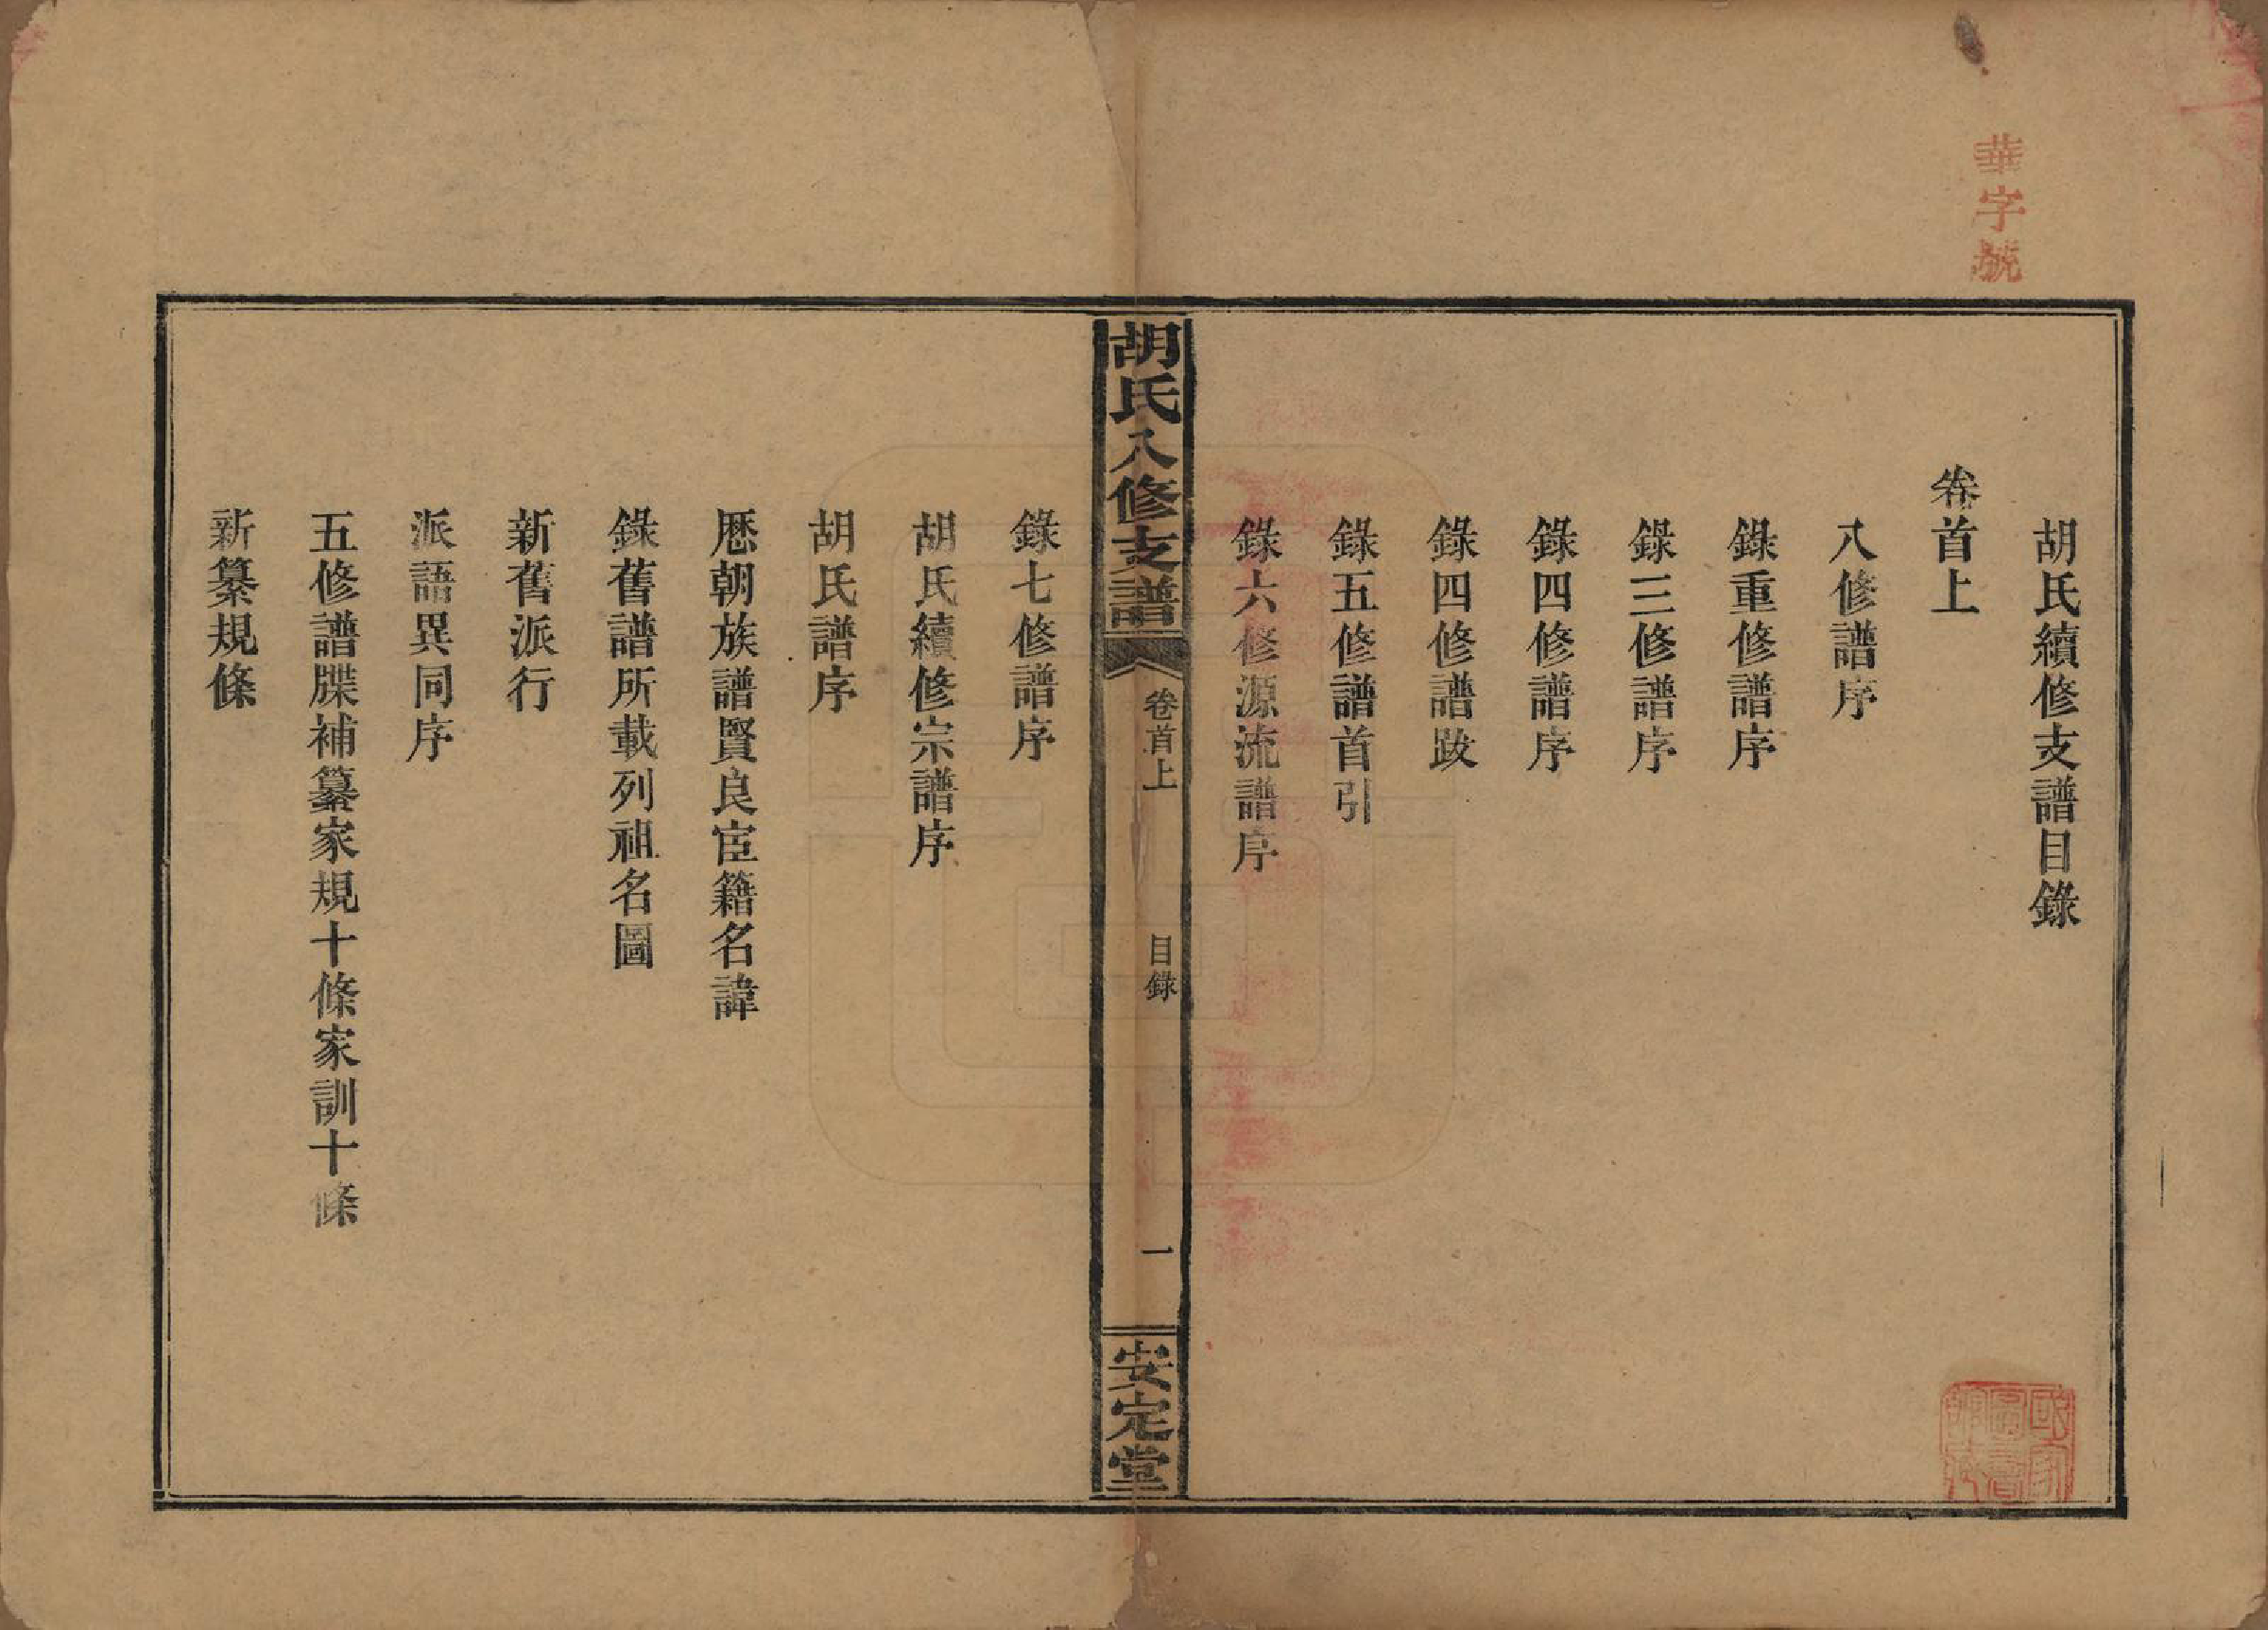 華字號
胡氏續修支譜目錄
卷首上
八修譜序
錄重修譜序
錄三修譜序
錄四修譜序
錄四修譜跋
錄五修譜首引
錄六修源流譜序
胡氏八修支譜
卷首上
目錄
一
安定堂
錄七修譜序
胡氏續修宗譜序
胡氏譜序
厯朝族譜賢良宦籍名諱
錄舊譜所載列祖名圖
新舊派行
派語異同序
五修譜牒補纂家規十條家訓十條
新纂規條
國家
圖書
館藏